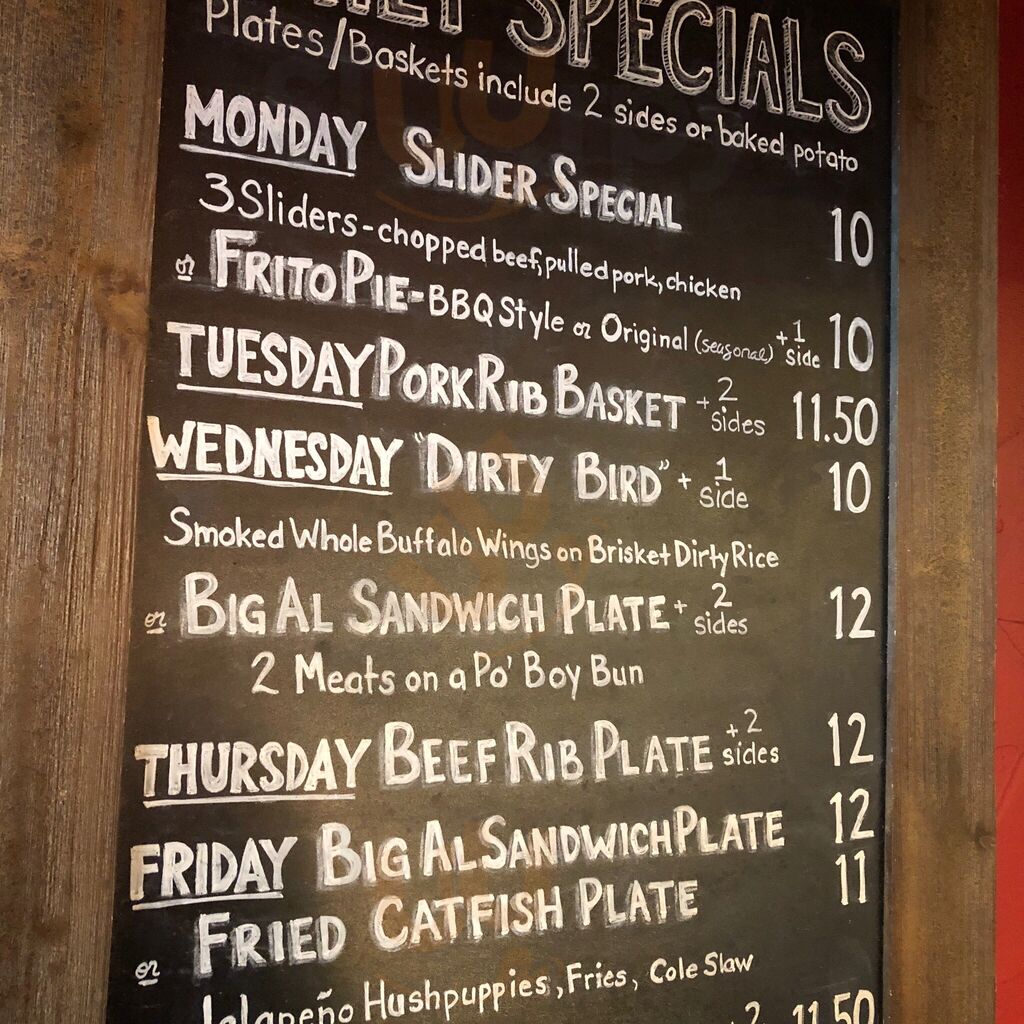 SPECIALS
Plates/Baskets include 2 sides or baked potato
MONDAY SLIDER SPECIAL 10
3 Sliders-chopped beef, pulled pork, chicken
or FRITO PIE-BBQ Style or Original (seasonal) +1 side 10
TUESDAY PORK RIB BASKET +2 sides 11.50
WEDNESDAY "DIRTY BIRD" +1 side 10
Smoked Whole Buffalo Wings on Brisket Dirty Rice
or BIG AL SANDWICH PLATE +2 sides 12
2 Meats on a Po' Boy Bun
THURSDAY BEEF RIB PLATE +2 sides 12
FRIDAY BIG AL SANDWICH PLATE 12
or FRIED CATFISH PLATE 11
Jalapeño Hushpuppies, Fries, Cole Slaw
+2 11.50